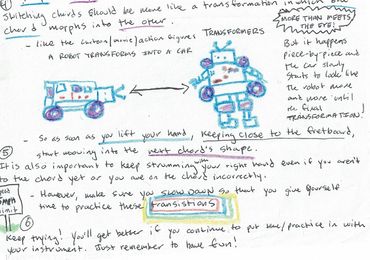 ④
Switching chords should be more like a transformation in which one
chord morphs into the other.
- like the cartoon/movie/action figures
A ROBOT TRANSFORMS INTO A CAR
TRANSFORMERS
MORE THAN MEETS
THE EYE!
But it happens
piece-by-piece and
the car slowly
starts to look like
the robot more
and more until
the final
TRANSFORMATION!
- So as soon as you lift your hand, keeping close to the fretboard,
start moving into the next chord's shape.
⑤
It is also important to keep strumming with your right hand even if you aren't
to the chord yet or you are on the chord incorrectly.
- However, make sure you SLOW DOWN so that you give yourself
time to practice these transistions
⑥
Keep trying! You'll get better if you continue to put time/practice in with
your instrument. Just remember to have fun!